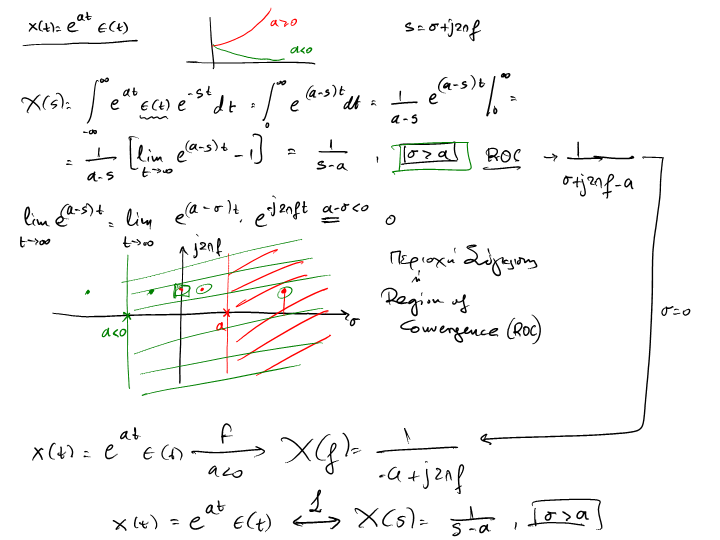 x(t) = e^{at} ε(t)
a>0
a<0
s = σ+j2πf
X(s) = ∫_{-∞}^{∞} e^{at} ε(t) e^{-st} dt = ∫_{0}^{∞} e^{(a-s)t} dt = 1/(a-s) e^{(a-s)t} |_{0}^{∞} =
= 1/(a-s) [lim_{t→∞} e^{(a-s)t} - 1] = 1/(s-a) , σ>a ROC → 1/(σ+j2πf-a)
lim_{t→∞} e^{(a-s)t} = lim_{t→∞} e^{(a-σ)t} · e^{-j2πft} a-σ<0 0
j2πf
σ
a<0
a
Περιοχή Σύγκλισης
ή
Region of
Convergence (ROC)
σ=0
x(t) = e^{at} ε(t) F→ a<0 X(f) = 1/(-a+j2πf)
x(t) = e^{at} ε(t) L↔ X(s) = 1/(s-a) , σ>a